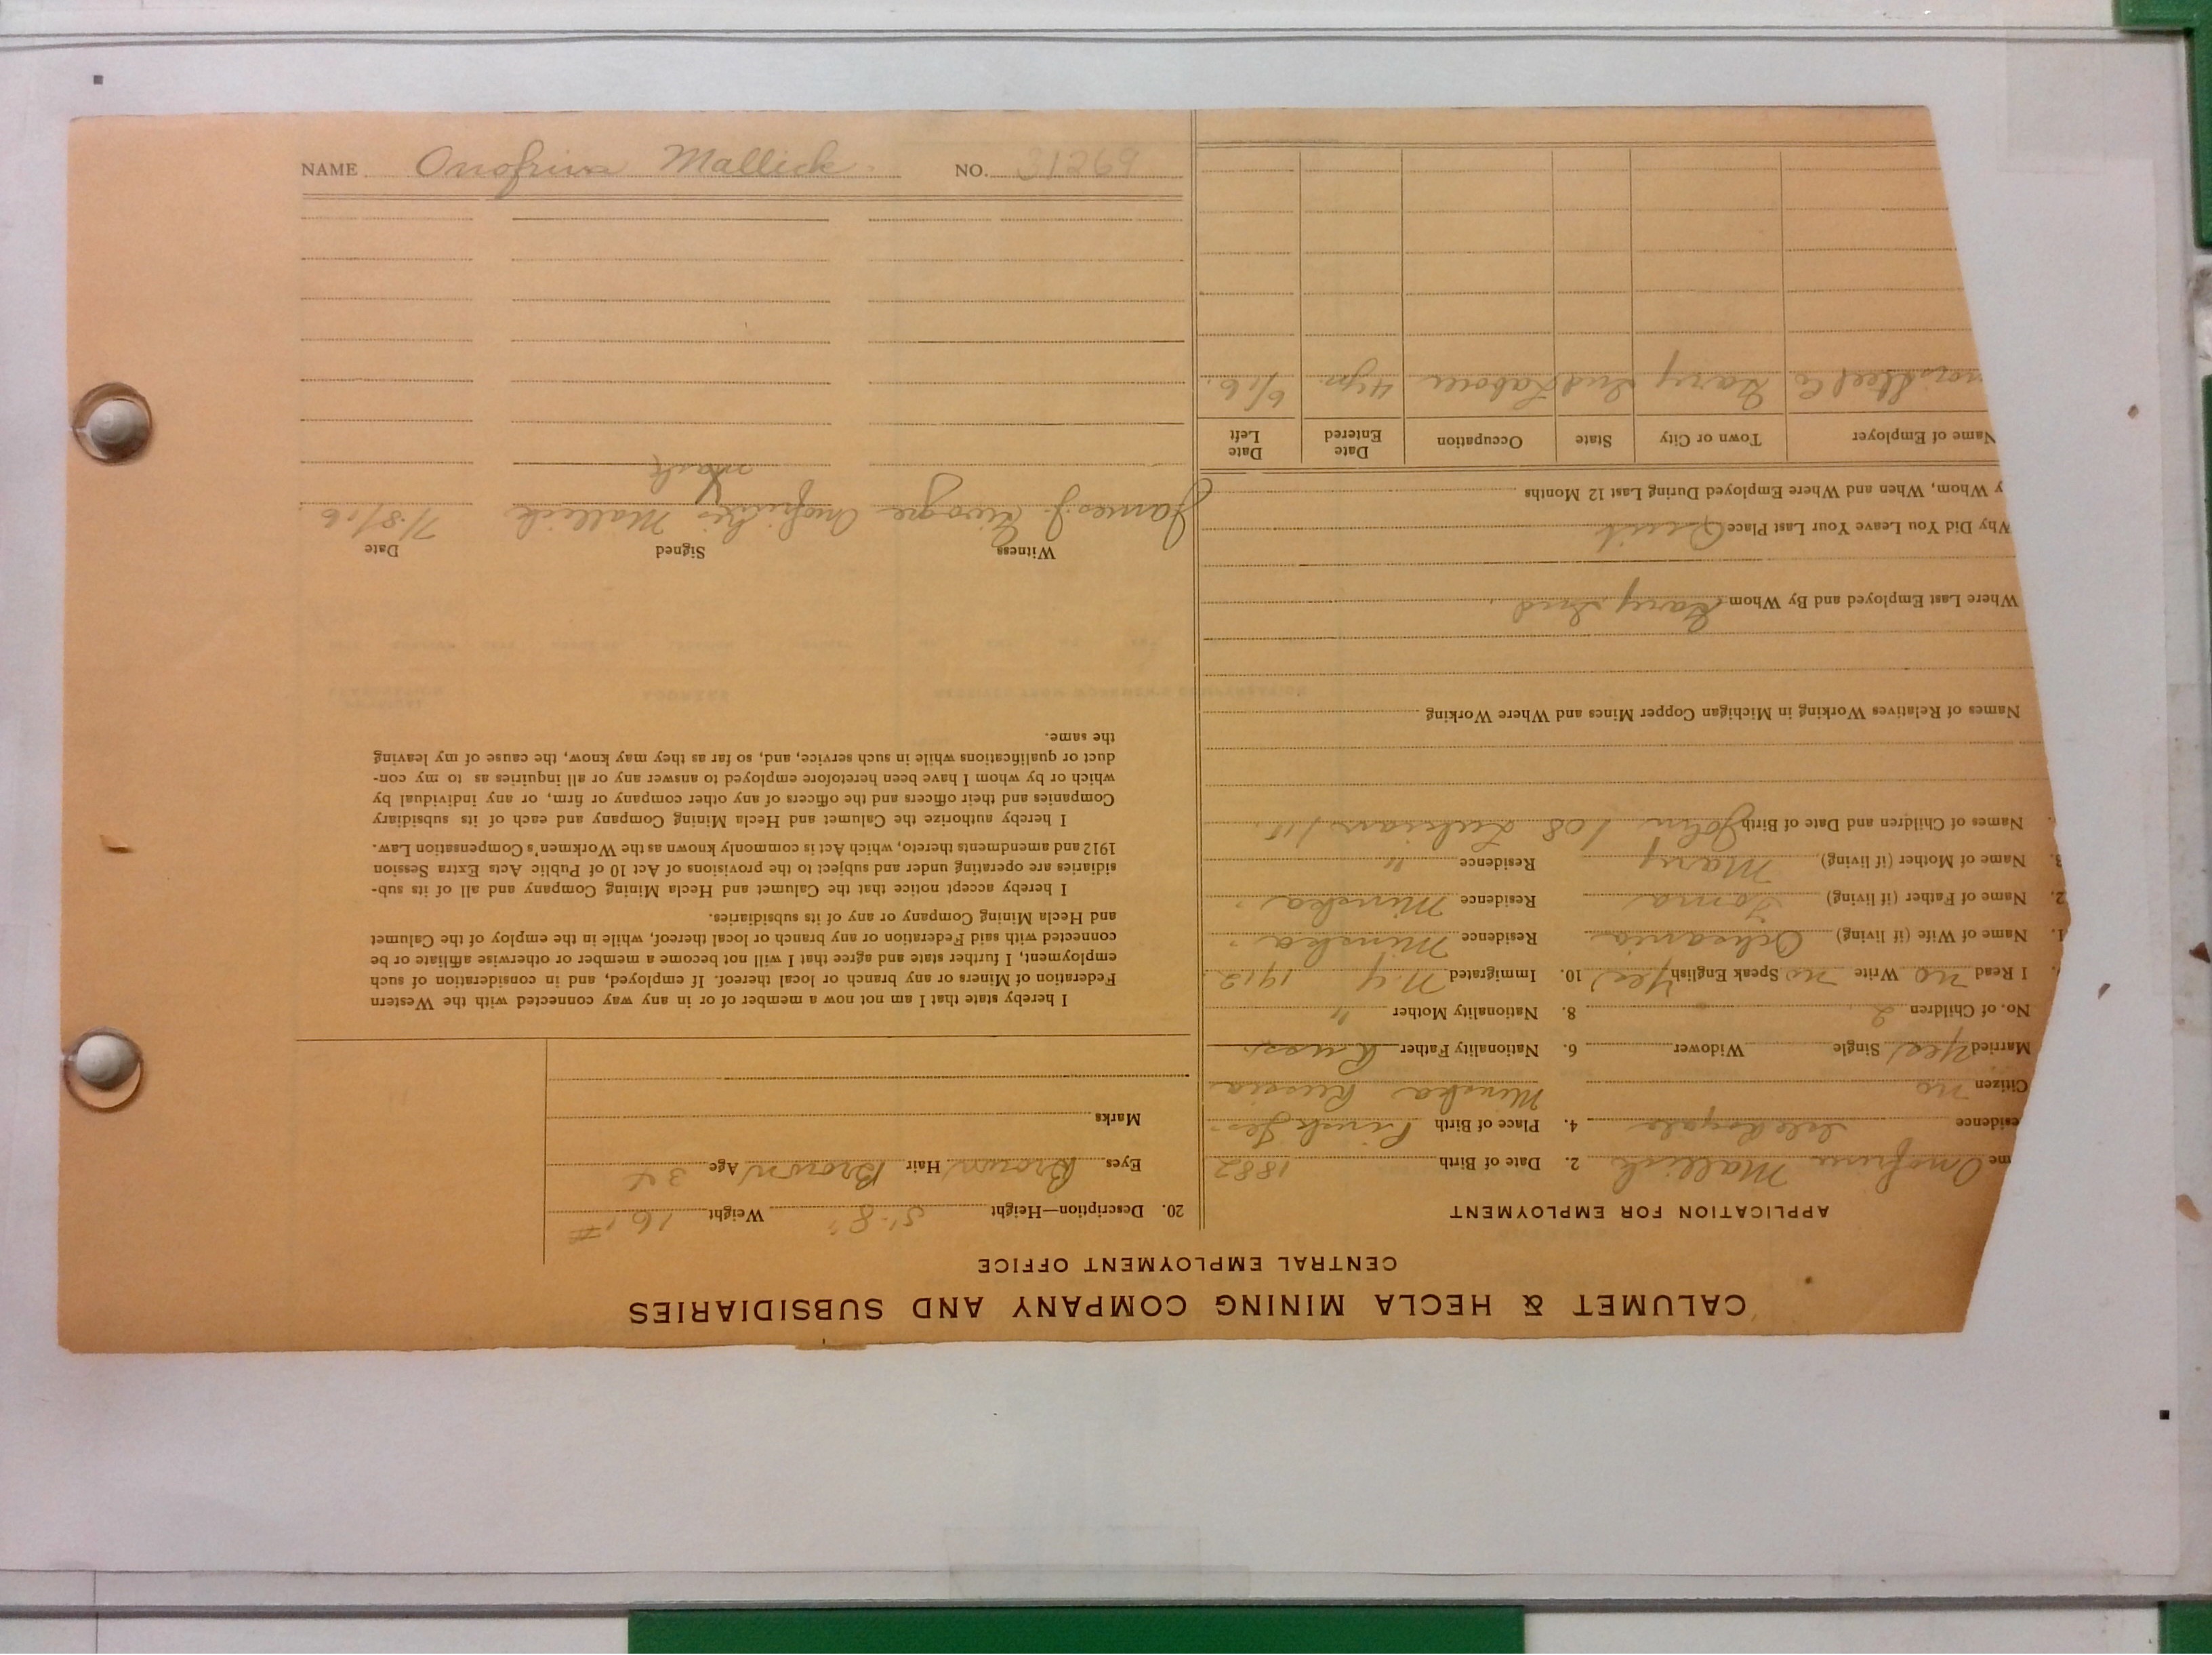 NAME Onofrius Mallick NO. 31269
CALUMET & HECLA MINING COMPANY AND SUBSIDIARIES
CENTRAL EMPLOYMENT OFFICE
APPLICATION FOR EMPLOYMENT
me Mallick 2. Date of Birth 1882
esidence Isle Royale 4. Place of Birth
Citizen no Minska Russia
Married Yes Single Widower 6. Nationality Father Russ.
No. of Children 2 8. Nationality Mother "
I Read no Write no Speak English Yes 10. Immigrated N.Y. 1912
1. Name of Wife (if living) Residence Minska
2. Name of Father (if living) Residence Minska
3. Name of Mother (if living) Mary Residence "
Names of Children and Date of Birth John / 08
Names of Relatives Working in Michigan Copper Mines and Where Working
Where Last Employed and By Whom Gary Ind
Why Did You Leave Your Last Place Quit
y Whom, When and Where Employed During Last 12 Months
Name of Employer Town or City State Occupation Date Entered Date Left
nois Steel Co Gary Ind Labour 4 yrs. 6/16.
20. Description—Height 5' 8" Weight
Eyes Brown Hair Brown Age 34
Marks
I hereby state that I am not now a member of or in any way connected with the Western
Federation of Miners or any branch or local thereof. If employed, and in consideration of such
employment, I further state and agree that I will not become a member or otherwise affiliate or be
connected with said Federation or any branch or local thereof, while in the employ of the Calumet
and Hecla Mining Company or any of its subsidiaries.
I hereby accept notice that the Calumet and Hecla Mining Company and all of its sub-
sidiaries are operating under and subject to the provisions of Act 10 of Public Acts Extra Session
1912 and amendments thereto, which Act is commonly known as the Workmen's Compensation Law.
I hereby authorize the Calumet and Hecla Mining Company and each of its subsidiary
Companies and their officers and the officers of any other company or firm, or any individual by
which or by whom I have been heretofore employed to answer any or all inquiries as to my con-
duct or qualifications while in such service, and, so far as they may know, the cause of my leaving
the same.
Witness Signed Date
James J. Mallick 7/8/16.
X
mark